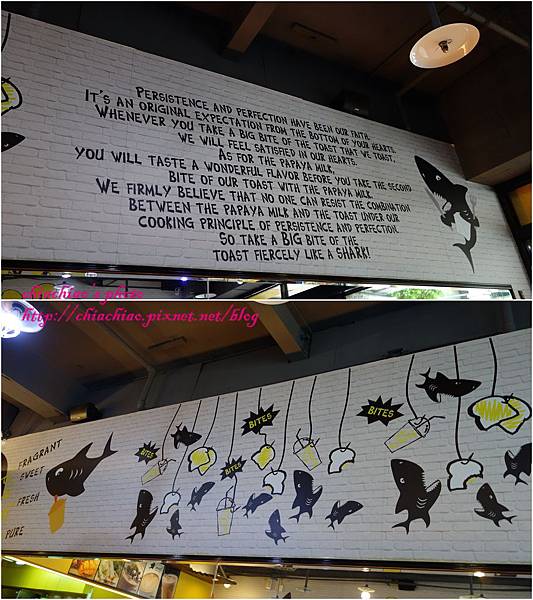 PERSISTENCE AND PERFECTION HAVE BEEN OUR FAITH.
IT'S AN ORIGINAL EXPECTATION FROM THE BOTTOM OF YOUR HEARTS.
WHENEVER YOU TAKE A BIG BITE OF THE TOAST THAT WE TOAST,
WE WILL FEEL SATISFIED IN OUR HEARTS.
AS FOR THE PAPAYA MILK,
YOU WILL TASTE A WONDERFUL FLAVOR BEFORE YOU TAKE THE SECOND
BITE OF OUR TOAST WITH THE PAPAYA MILK.
WE FIRMLY BELIEVE THAT NO ONE CAN RESIST THE COMBINATION
BETWEEN THE PAPAYA MILK AND THE TOAST UNDER OUR
COOKING PRINCIPLE OF PERSISTENCE AND PERFECTION.
SO TAKE A BIG BITE OF THE
TOAST FIERCELY LIKE A SHARK!
chiachiao's photo
http://chiachiao.pixnet.net/blog
FRAGRANT
SWEET
FRESH
PURE
BITES
BITES
BITES
BITES